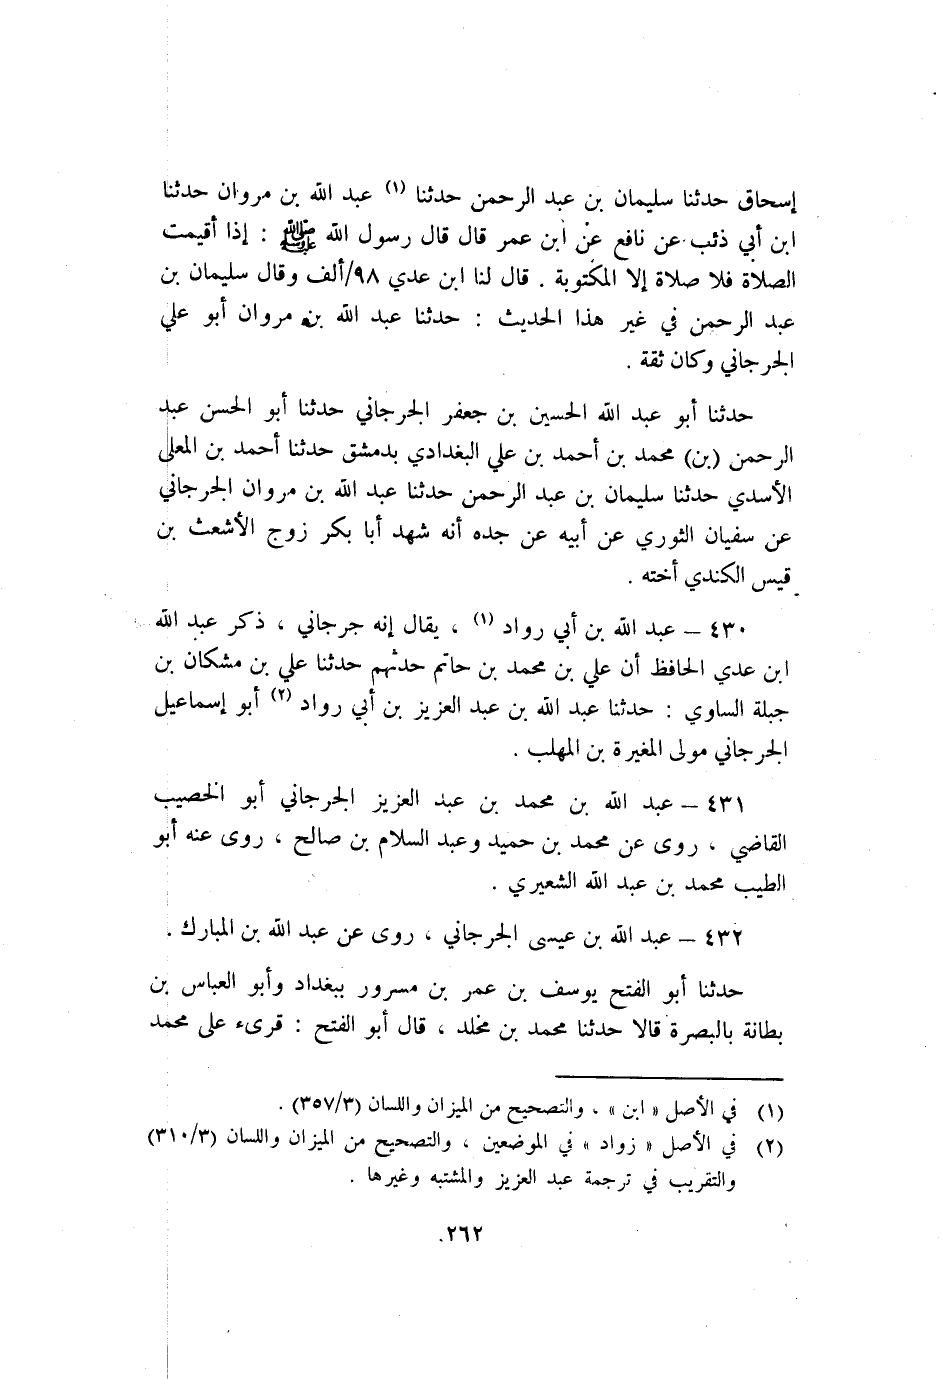 إسحاق حدثنا سليمان بن عبد الرحمن حدثنا (١) عبد الله بن مروان حدثنا
ابن أبي ذئب عن نافع عن ابن عمر قال قال رسول الله ﷺ : إذا أقيمت
الصلاة فلا صلاة إلا المكتوبة . قال لنا ابن عدي ٩٨/ألف وقال سليمان بن
عبد الرحمن في غير هذا الحديث : حدثنا عبد الله بن مروان أبو علي
الجرجاني وكان ثقة .
حدثنا أبو عبد الله الحسين بن جعفر الجرجاني حدثنا أبو الحسن عبد
الرحمن (بن) محمد بن أحمد بن علي البغدادي بدمشق حدثنا أحمد بن المعلى
الأسدي حدثنا سليمان بن عبد الرحمن حدثنا عبد الله بن مروان الجرجاني
عن سفيان الثوري عن أبيه عن جده أنه شهد أبا بكر زوج الأشعث بن
قيس الكندي أخته .
٤٣٠ – عبد الله بن أبي رواد (١) ، يقال إنه جرجاني ، ذكر عبد الله
ابن عدي الحافظ أن علي بن محمد بن حاتم حدثهم حدثنا علي بن مشكان بن
جبلة الساوي : حدثنا عبد الله بن عبد العزيز بن أبي رواد (٢) أبو إسماعيل
الجرجاني مولى المغيرة بن المهلب .
٤٣١ – عبد الله بن محمد بن عبد العزيز الجرجاني أبو الخصيب
القاضي ، روى عن محمد بن حميد وعبد السلام بن صالح ، روى عنه أبو
الطيب محمد بن عبد الله الشعيري .
٤٣٢ – عبد الله بن عيسى الجرجاني ، روى عن عبد الله بن المبارك .
حدثنا أبو الفتح يوسف بن عمر بن مسرور ببغداد وأبو العباس بن
بطانة بالبصرة قالا حدثنا محمد بن مخلد ، قال أبو الفتح : قرىء على محمد
(١) في الأصل « ابن » ، والتصحيح من الميزان واللسان (٣٥٧/٣) .
(٢) في الأصل « زواد » في الموضعين ، والتصحيح من الميزان واللسان (٣١٠/٣)
والتقريب في ترجمة عبد العزيز والمشتبه وغيرها .
٢٦٢